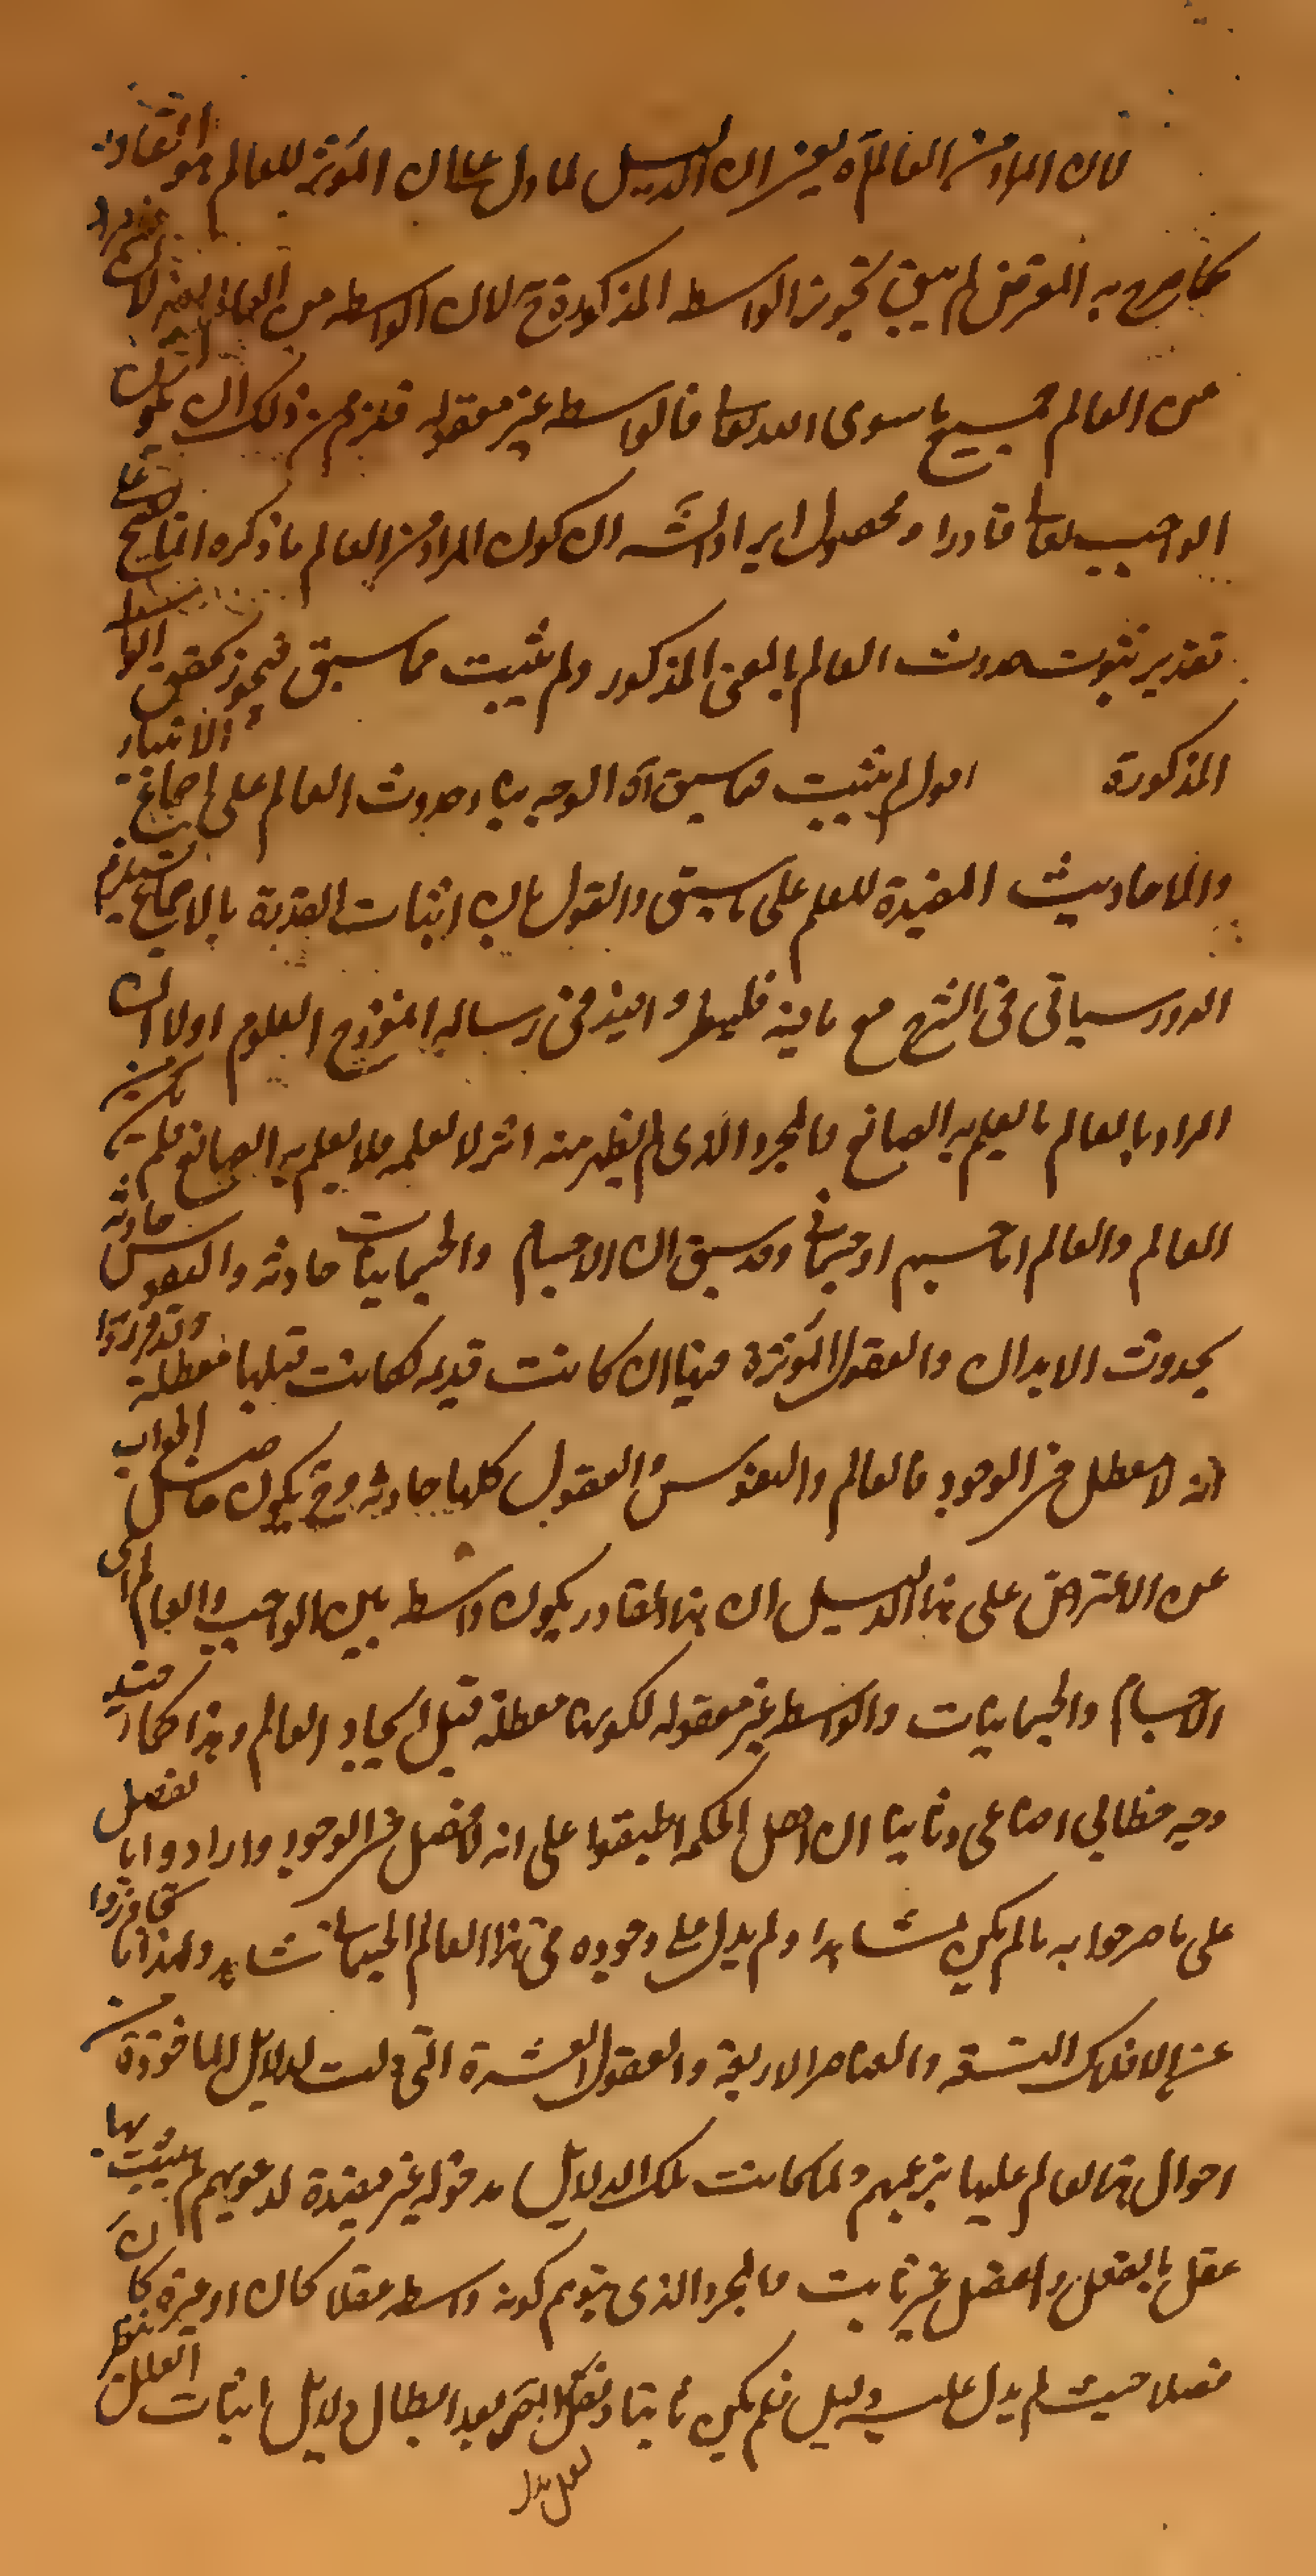 لان المراد من العالم آه يعنى ان الدليل لما دل على ان المؤثر للعالم هو القادر
كما صرح به المعترض لم يبق تجويز الواسطه المذكورة ح لان الواسطه من العالم
من العالم جميع ما سوى الله تعالى فالواسطه غير معقوله فلزم من ذلك ان يكون
الواجب تعالى قادرا ومحصول ايراد الشه ان كون المراد من العالم ما ذكره انما يصح على
تقدير ثبوت حدوث العالم بالمعنى المذكور ولم يثبت مما سبق فيجوز تحقق الواسطة
المذكورة اقول لم يثبت مما سبق آه الوجه بناء حدوث العالم على اجماع الانبياء
والاحاديث المفيدة للعلم على ما سبق والقول بان اثبات القدرة بالاجماع يستلزم
الدور سياتى فى الشرح مع ما فيه فلينظر وافيد فى رساله انموذج العلوم اولا ان
المراد بالعالم ما يعلم به الصانع فالمجرد الذى لم يظهر منه اثر لا نعلمه فلا يعلم به الصانع فلم يكن من
العالم والعالم اما جسم او جسمانى وقد سبق ان الاجسام والجسمانيات حادثه والنفوس حادثه
بحدوث الابدان والعقول المؤثرة فيها ان كانت قديمه لكانت قبلها معطلة وقد قرروا
انه لا معطل فى الوجود فالعالم والنفوس والعقول كلها حادثه وح يكون حاصل الجواب
عن الاعتراض على هذا الدليل ان هذا القادر يكون واسطه بين الواجب والعالم اى
الاجسام والجسمانيات والواسطه غير معقوله لكونها معطلة قبل ايجاد العالم وهذا كما ترى
وجه خطابى اقناعى وثانيا ان اهل الحكمه اطبقوا على انه لا فصل فى الوجود وارادوا بالفصل
على ما صرحوا به ما لم يكن مشاهدا ولم يدل على وجوده فى هذا العالم الجسمانى شاهد ولهذا ما تجاوزوا
عن الافلاك التسعه والعناصر الاربعة والعقول العشرة التى دلت الدلائل الماخوذة من
احوال هذا العالم عليها بزعمهم ولما كانت تلك الدلائل مدخوله غير مفيدة لدعويهم لم يثبت بها
عقل بالفعل والفضل غير ثابت فالمجرد الذى يتوهم كونه واسطه عقلا كان او غيره كان
فضلا حيث لم يدل عليه دليل فلم يكن ثابتا وبعد ابطال دلايل اثبات العقل